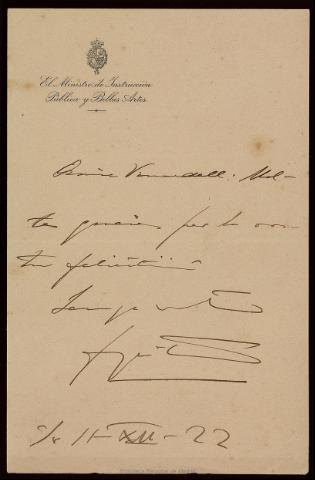 El Ministro de Instrucción
Pública y Bellas Artes
Amic Vendrell: Mol-
tes gracies per la vos-
tra felicitació
Sempre
S/c 11-XII-22
Biblioteca Nacional de España